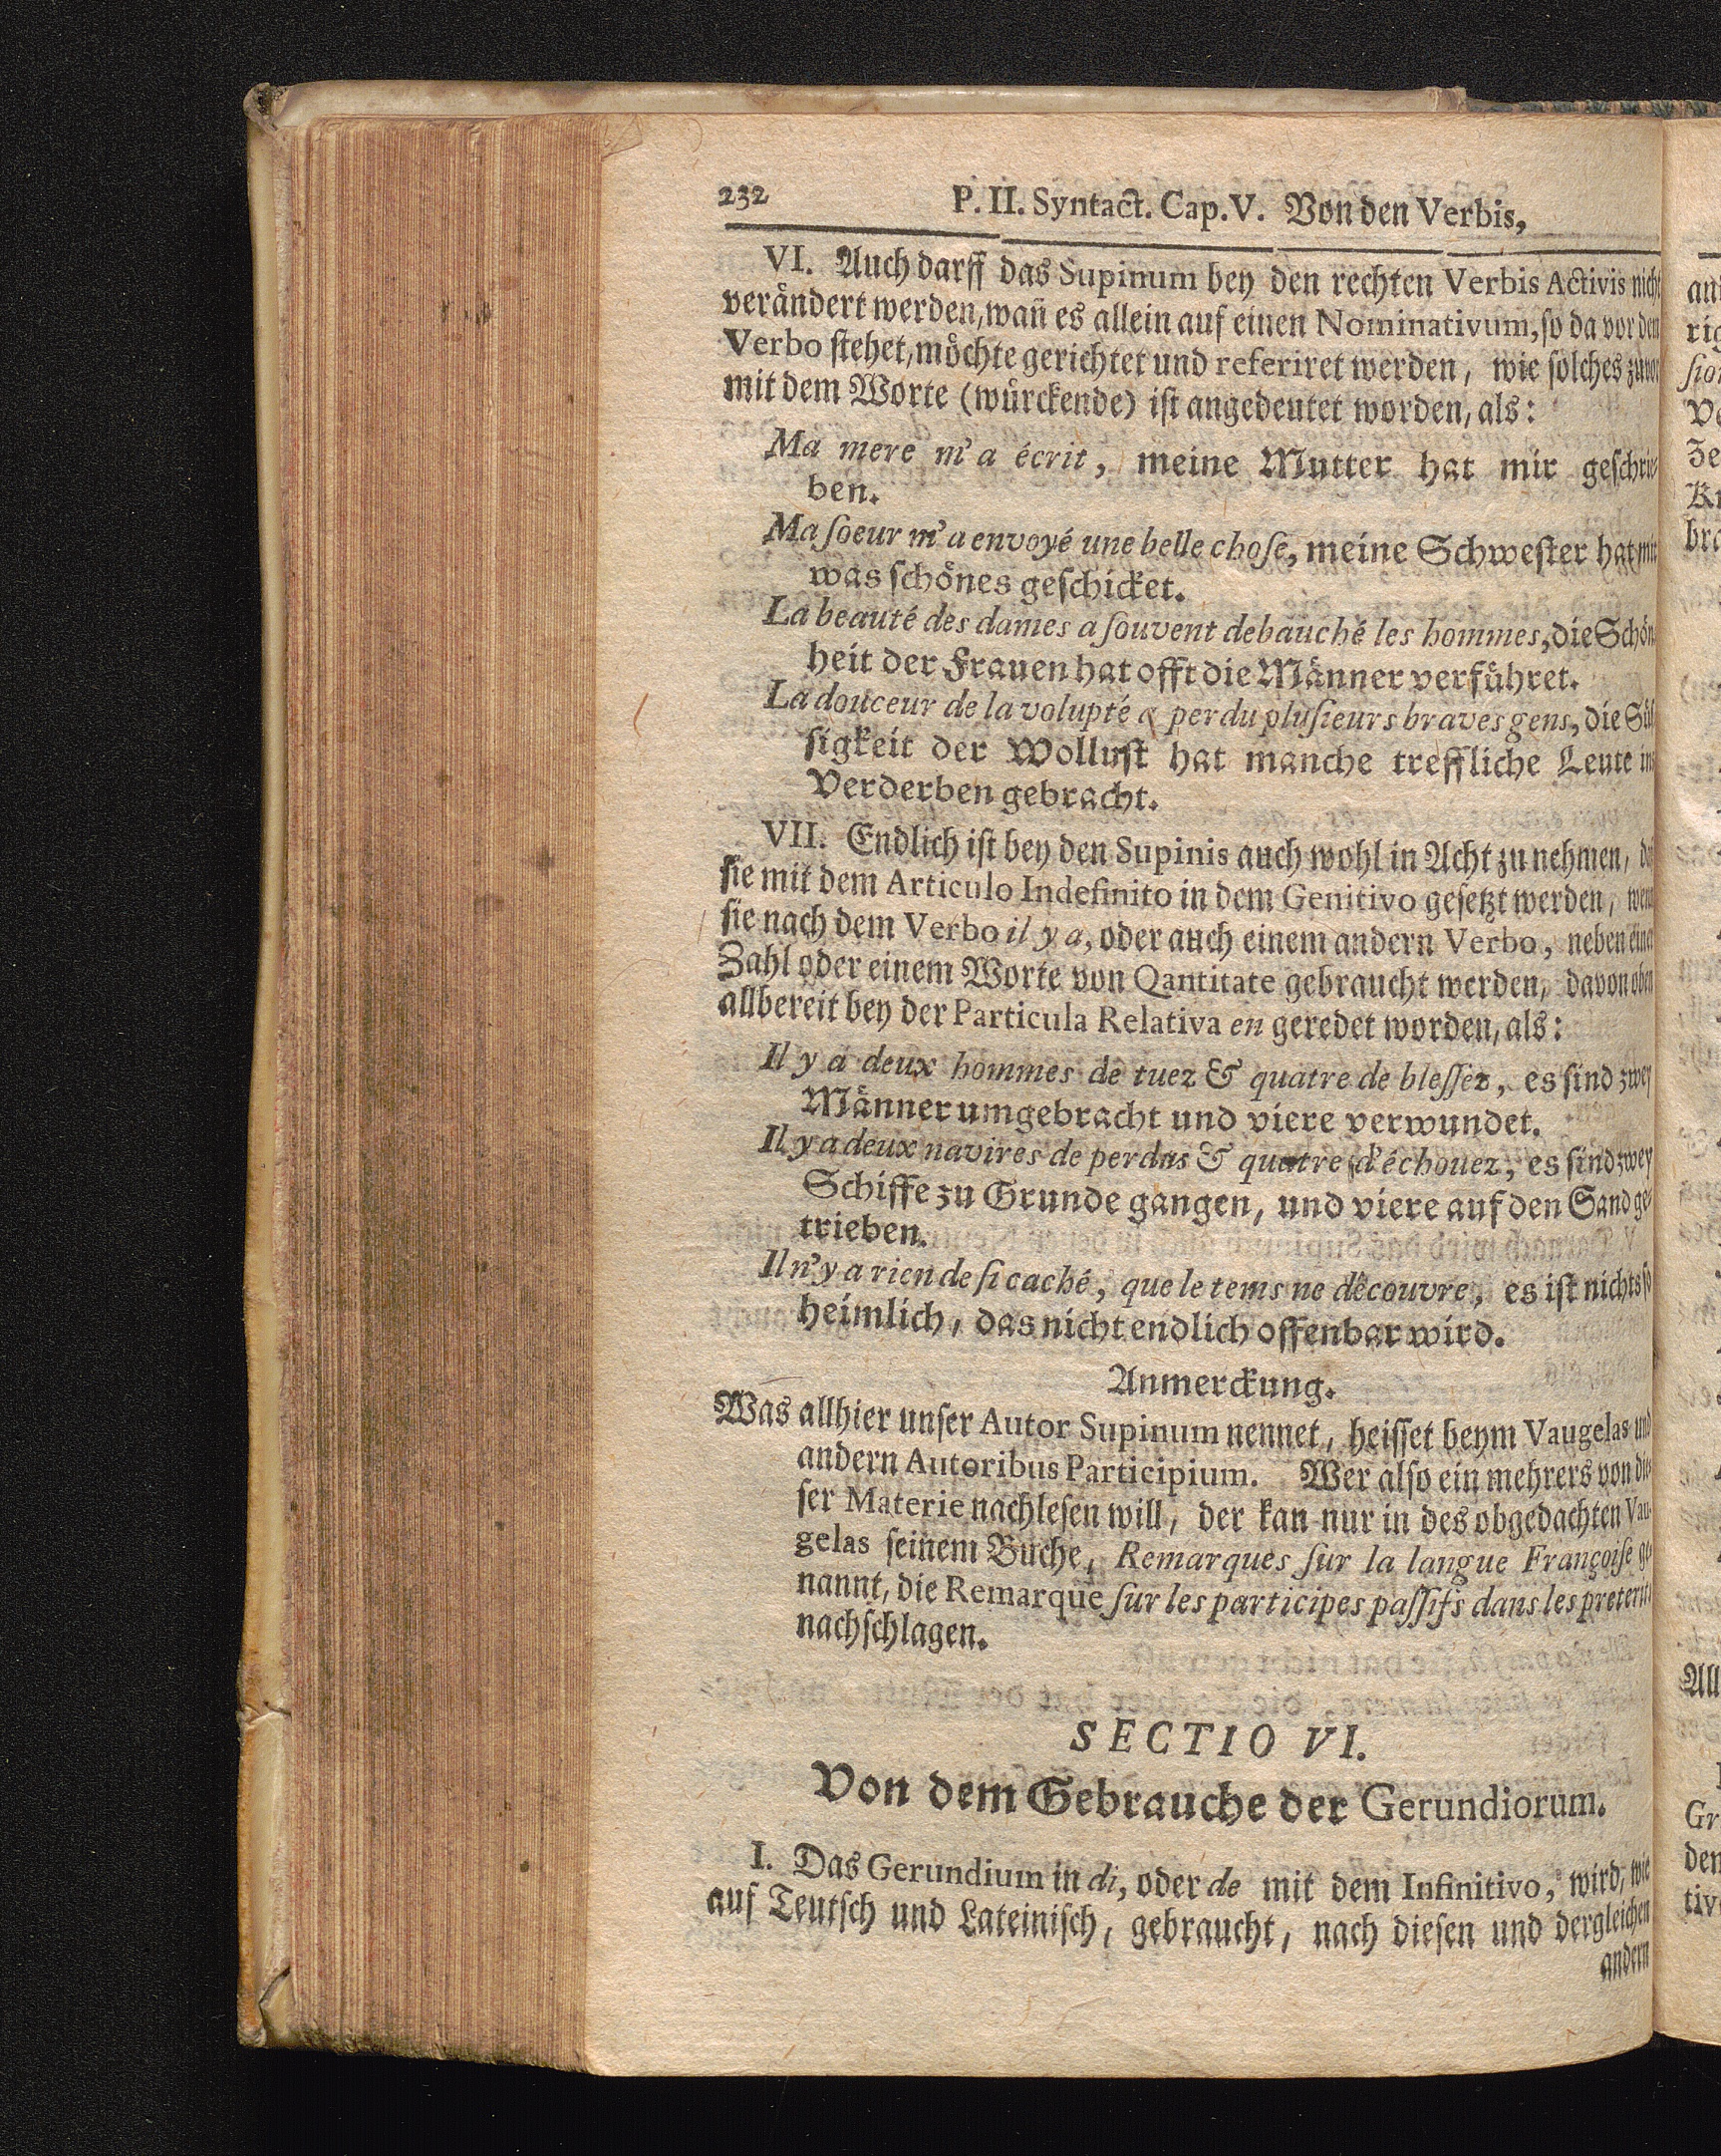 232 P. II. Syntact. Cap. V. Von den Verbis,
VI. Auch darff das Supinum bey den rechten Verbis Activis nicht
verändert werden, wañ es allein auf einen Nominativum, so da vor den
Verbo stehet, möchte gerichtet und referiret werden, wie solches zuvor
mit dem Worte (würckende) ist angedeutet worden, als:
Ma mere m'a écrit, meine Mutter hat mir geschrie-
ben.
Ma soeur m'a envoyé une belle chose, meine Schwester hat mir
was schönes geschicket.
La beauté des dames a souvent debauché les hommes, die Schön-
heit der Frauen hat offt die Männer verführet.
La douceur de la volupté a perdu plusieurs braves gens, die Süs-
sigkeit der Wollust hat manche treffliche Leute ins
Verderben gebracht.
VII. Endlich ist bey den Supinis auch wohl in Acht zu nehmen,
sie mit dem Articulo Indefinito in dem Genitivo gesetzt werden, wenn
sie nach dem Verbo il y a, oder auch einem andern Verbo, neben einer
Zahl oder einem Worte von Qantitate gebraucht werden, davon oben
allbereit bey der Particula Relativa en geredet worden, als:
Il y a deux hommes de tuez & quatre de blessez, es sind zwey
Männer umgebracht und viere verwundet.
Il y a deux navires de perdus & quatre d'échouez, es sind zwey
Schiffe zu Grunde gangen, und viere auf den Sand ge-
trieben.
Il n'y a rien de si caché, que le tems ne découvre, es ist nichts so
heimlich, das nicht endlich offenbar wird.
Anmerckung.
Was allhier unser Autor Supinum nennet, heisset beym Vaugelas und
andern Autoribus Participium. Wer also ein mehrers von die-
ser Materie nachlesen will, der kan nur in des obgedachten Vau-
gelas seinem Buche, Remarques sur la langue Françoise ge-
nannt, die Remarque sur les participes passifs dans les preterits
nachschlagen.
SECTIO VI.
Von dem Gebrauche der Gerundiorum.
I. Das Gerundium in di, oder de mit dem Infinitivo, wird, wie
auf Teutsch und Lateinisch, gebraucht, nach diesen und dergleichen
andern